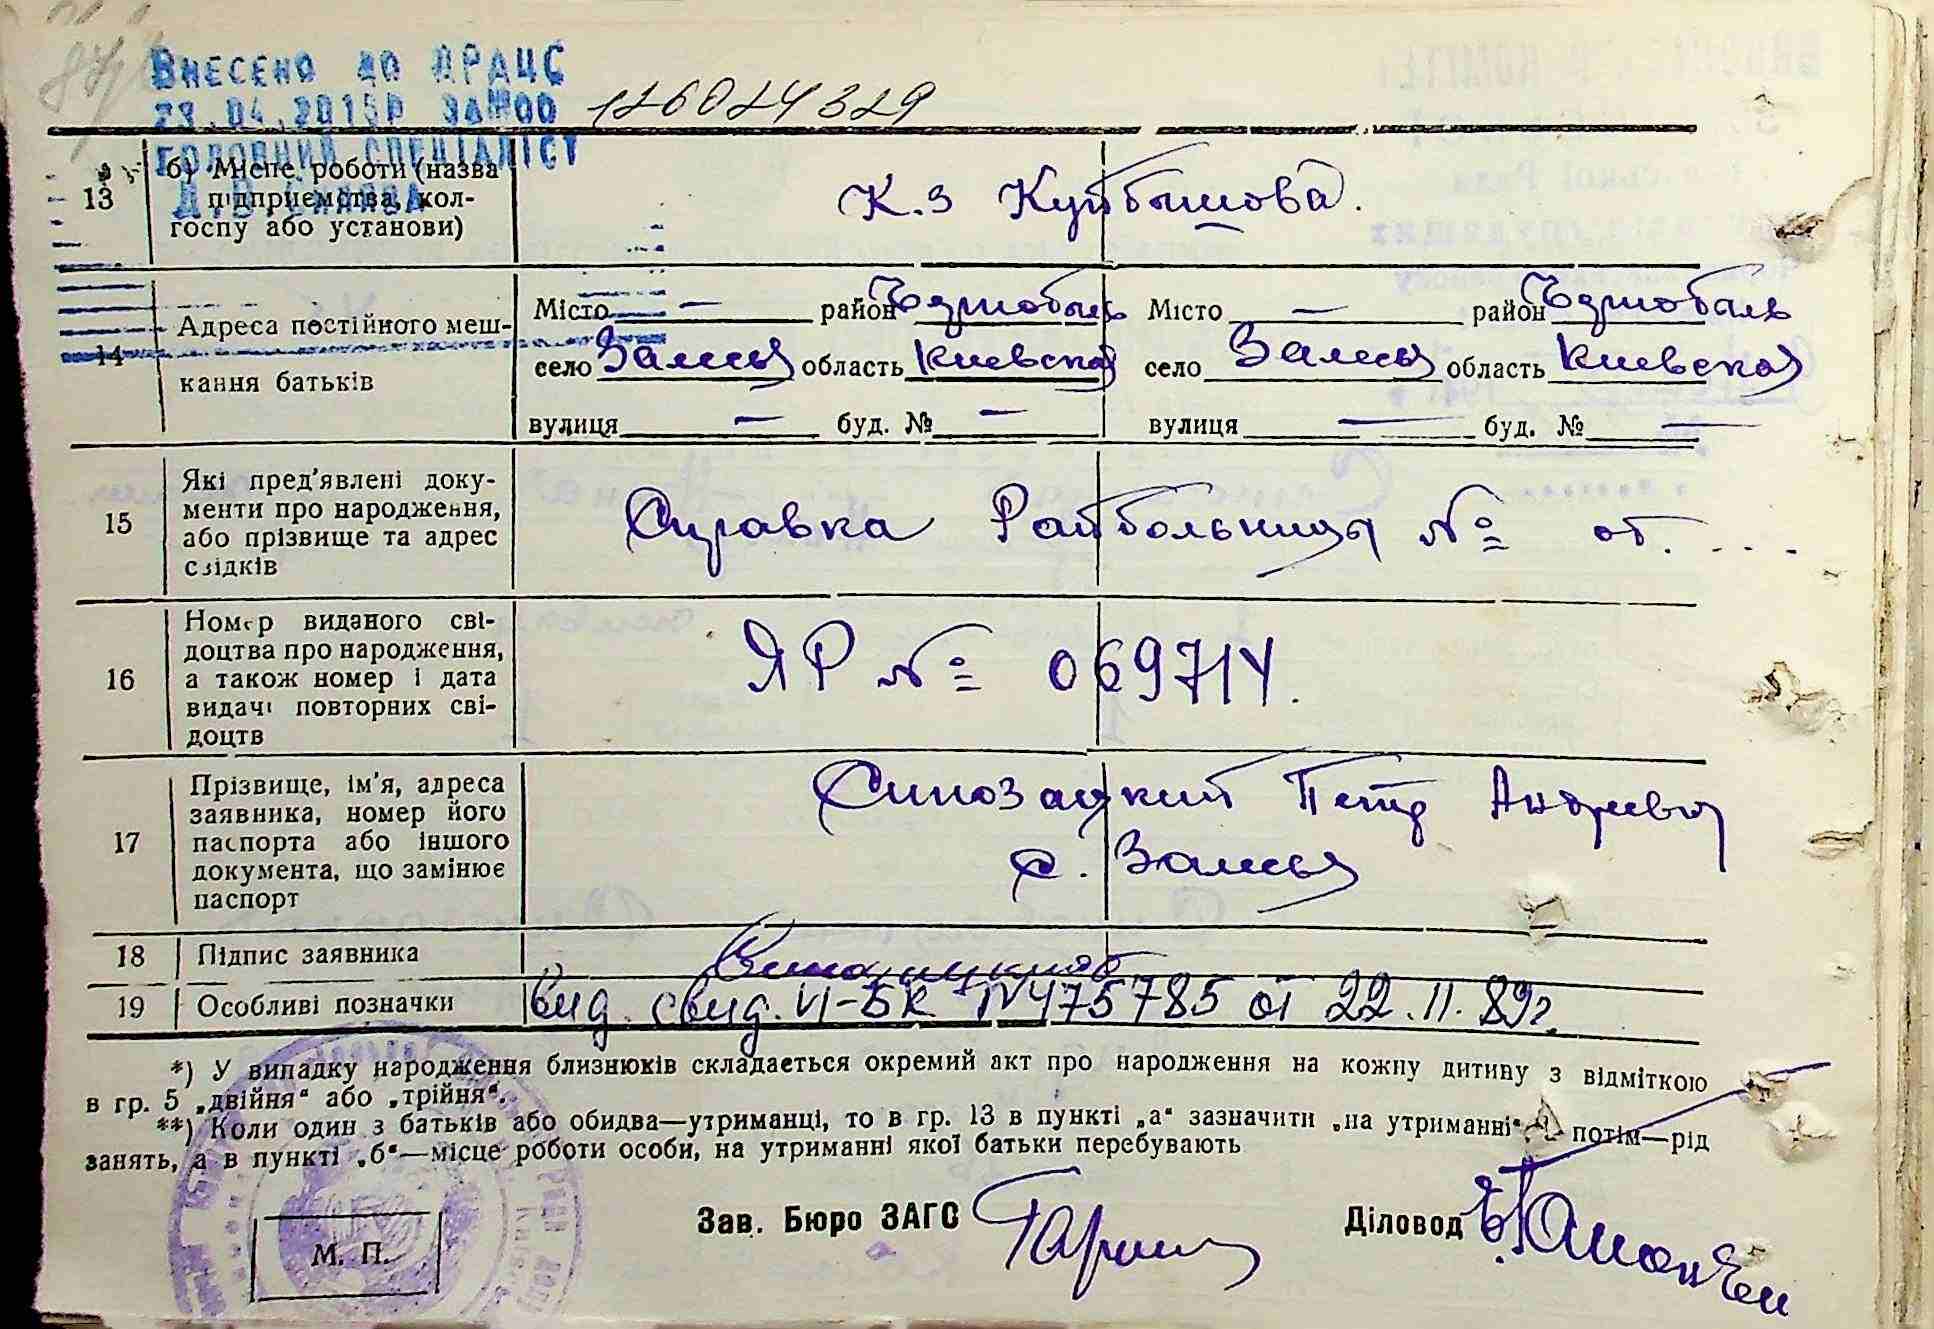 Внесено до ДРАЦС
23.04.2015р за №00 126024329
головний спеціаліст
13 б) Місце роботи (назва
підприємства, кол-
госпу або установи)
К.з Куйбышова.
14 Адреса постійного меш-
кання батьків
Місто — район Чернобыль Місто — район Чернобыль
село Залесья область Киевская село Залесья область Киевская
вулиця — буд. № — вулиця — буд. № —
15 Які пред'явлені доку-
менти про народження,
або прізвище та адрес
свідків
Справка Райбольницы № от. ....
16 Номер виданого сві-
доцтва про народження,
а також номер і дата
видачі повторних сві-
доцтв
ЯР № 069714.
17 Прізвище, ім'я, адреса
заявника, номер його
паспорта або іншого
документа, що замінює
паспорт
Петр Андреевич
с. Залесья
18 Підпис заявника
19 Особливі позначки вид. свид. VI-БК № 475785 от 22.11.89г.
*) У випадку народження близнюків складається окремий акт про народження на кожну дитину з відміткою
в гр. 5 „двійня“ або „трійня“.
**) Коли один з батьків або обидва—утриманці, то в гр. 13 в пункті „а“ зазначити „на утриманні“, а потім—рід
занять, а в пункті „б“—місце роботи особи, на утриманні якої батьки перебувають
Зав. Бюро ЗАГС Діловод
М. П.